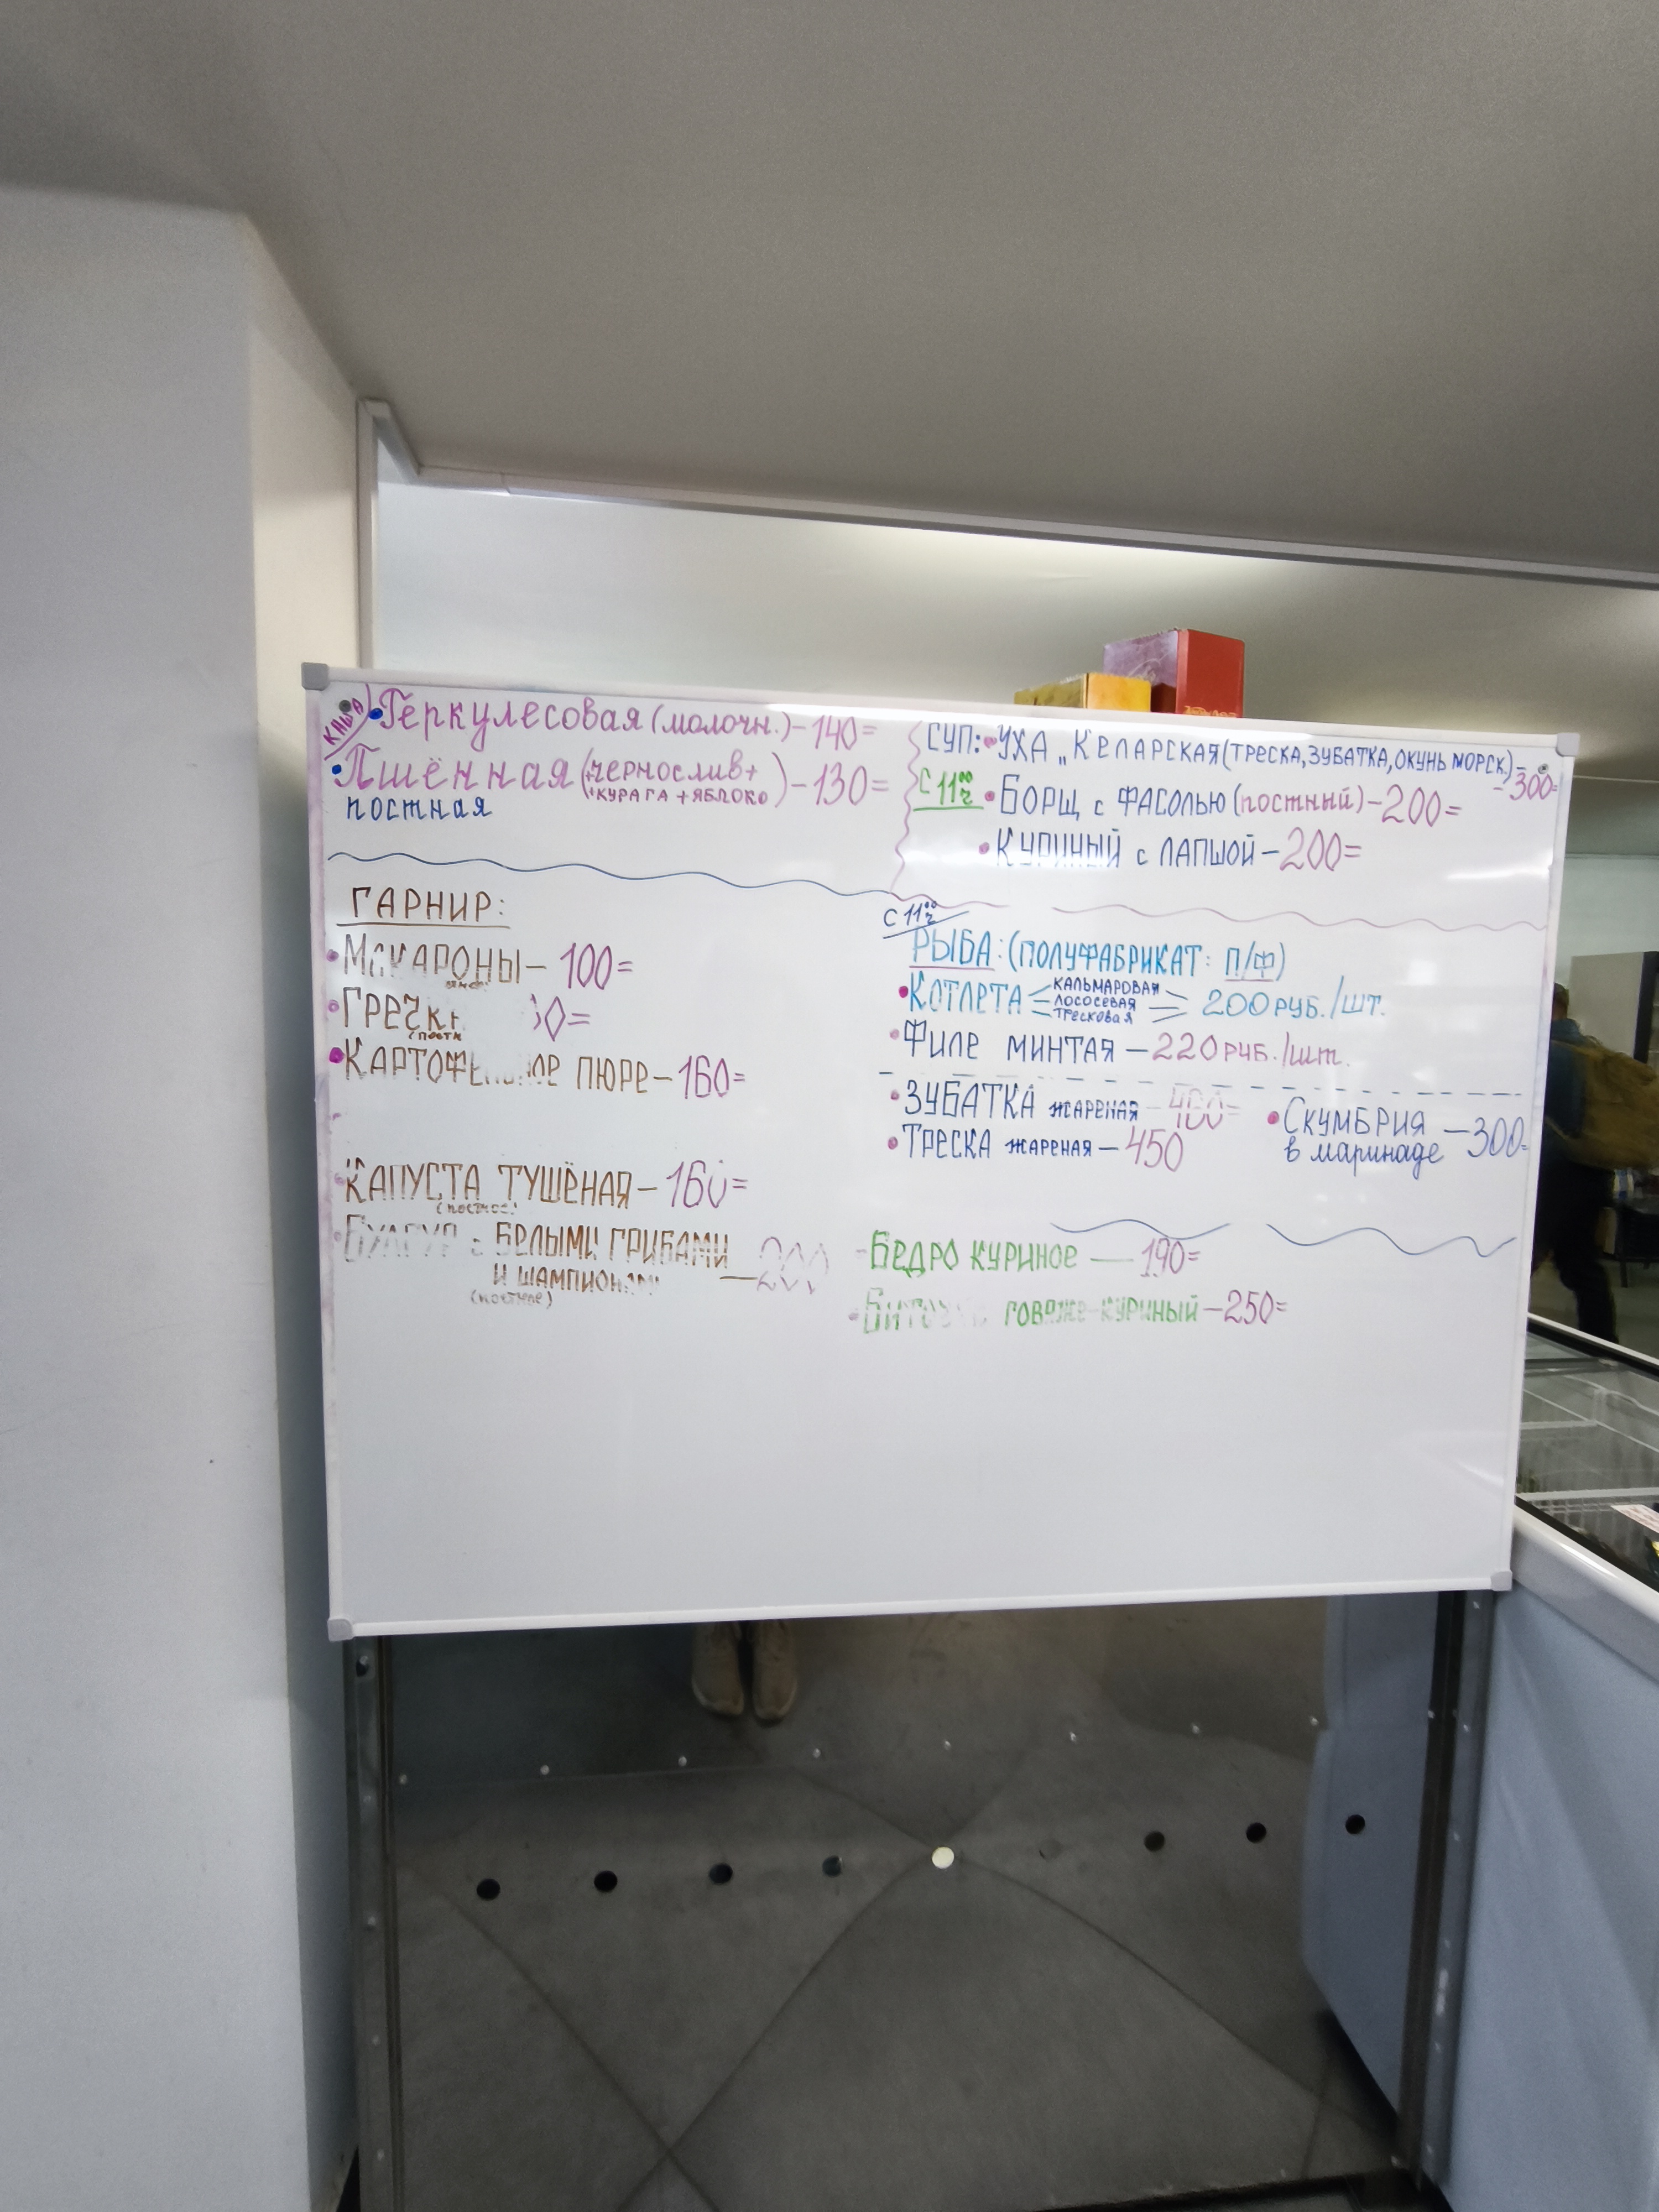 КАША
• Геркулесовая (молочн.) – 140=
• Пшённая (чернослив+
+КУРАГА + ЯБЛОКО) – 130=
постная
СУП: • УХА „КЕЛАРСКАЯ (ТРЕСКА, ЗУБАТКА, ОКУНЬ МОРСК.) –
– 300=
С 11⁰⁰ч • БОРЩ с ФАСОЛЬЮ (постный) – 200=
• КУРИНЫЙ с ЛАПШОЙ – 200=
ГАРНИР:
• МАКАРОНЫ – 100=
• ГРЕЧК
(постн
• КАРТОФЕЛЬНОЕ ПЮРЕ – 160=
КАПУСТА ТУШЁНАЯ – 160=
• БУЛГУР с БЕЛЫМИ ГРИБАМИ
И ШАМПИНЬОНАМИ – 200
(постное)
С 11⁰⁰ч
РЫБА: (ПОЛУФАБРИКАТ: П/Ф)
• КОТЛЕТА КАЛЬМАРОВАЯ
ЛОСОСЕВАЯ 200 РУБ./ШТ.
ТРЕСКОВАЯ
• ФИЛЕ МИНТАЯ – 220 РУБ./шт.
• ЗУБАТКА ЖАРЕНАЯ – 400=
• ТРЕСКА ЖАРЕНАЯ – 450
• СКУМБРИЯ – 300=
в маринаде
- БЕДРО КУРИНОЕ — 190=
• ГОВЯЖЕ-КУРИНЫЙ – 250=